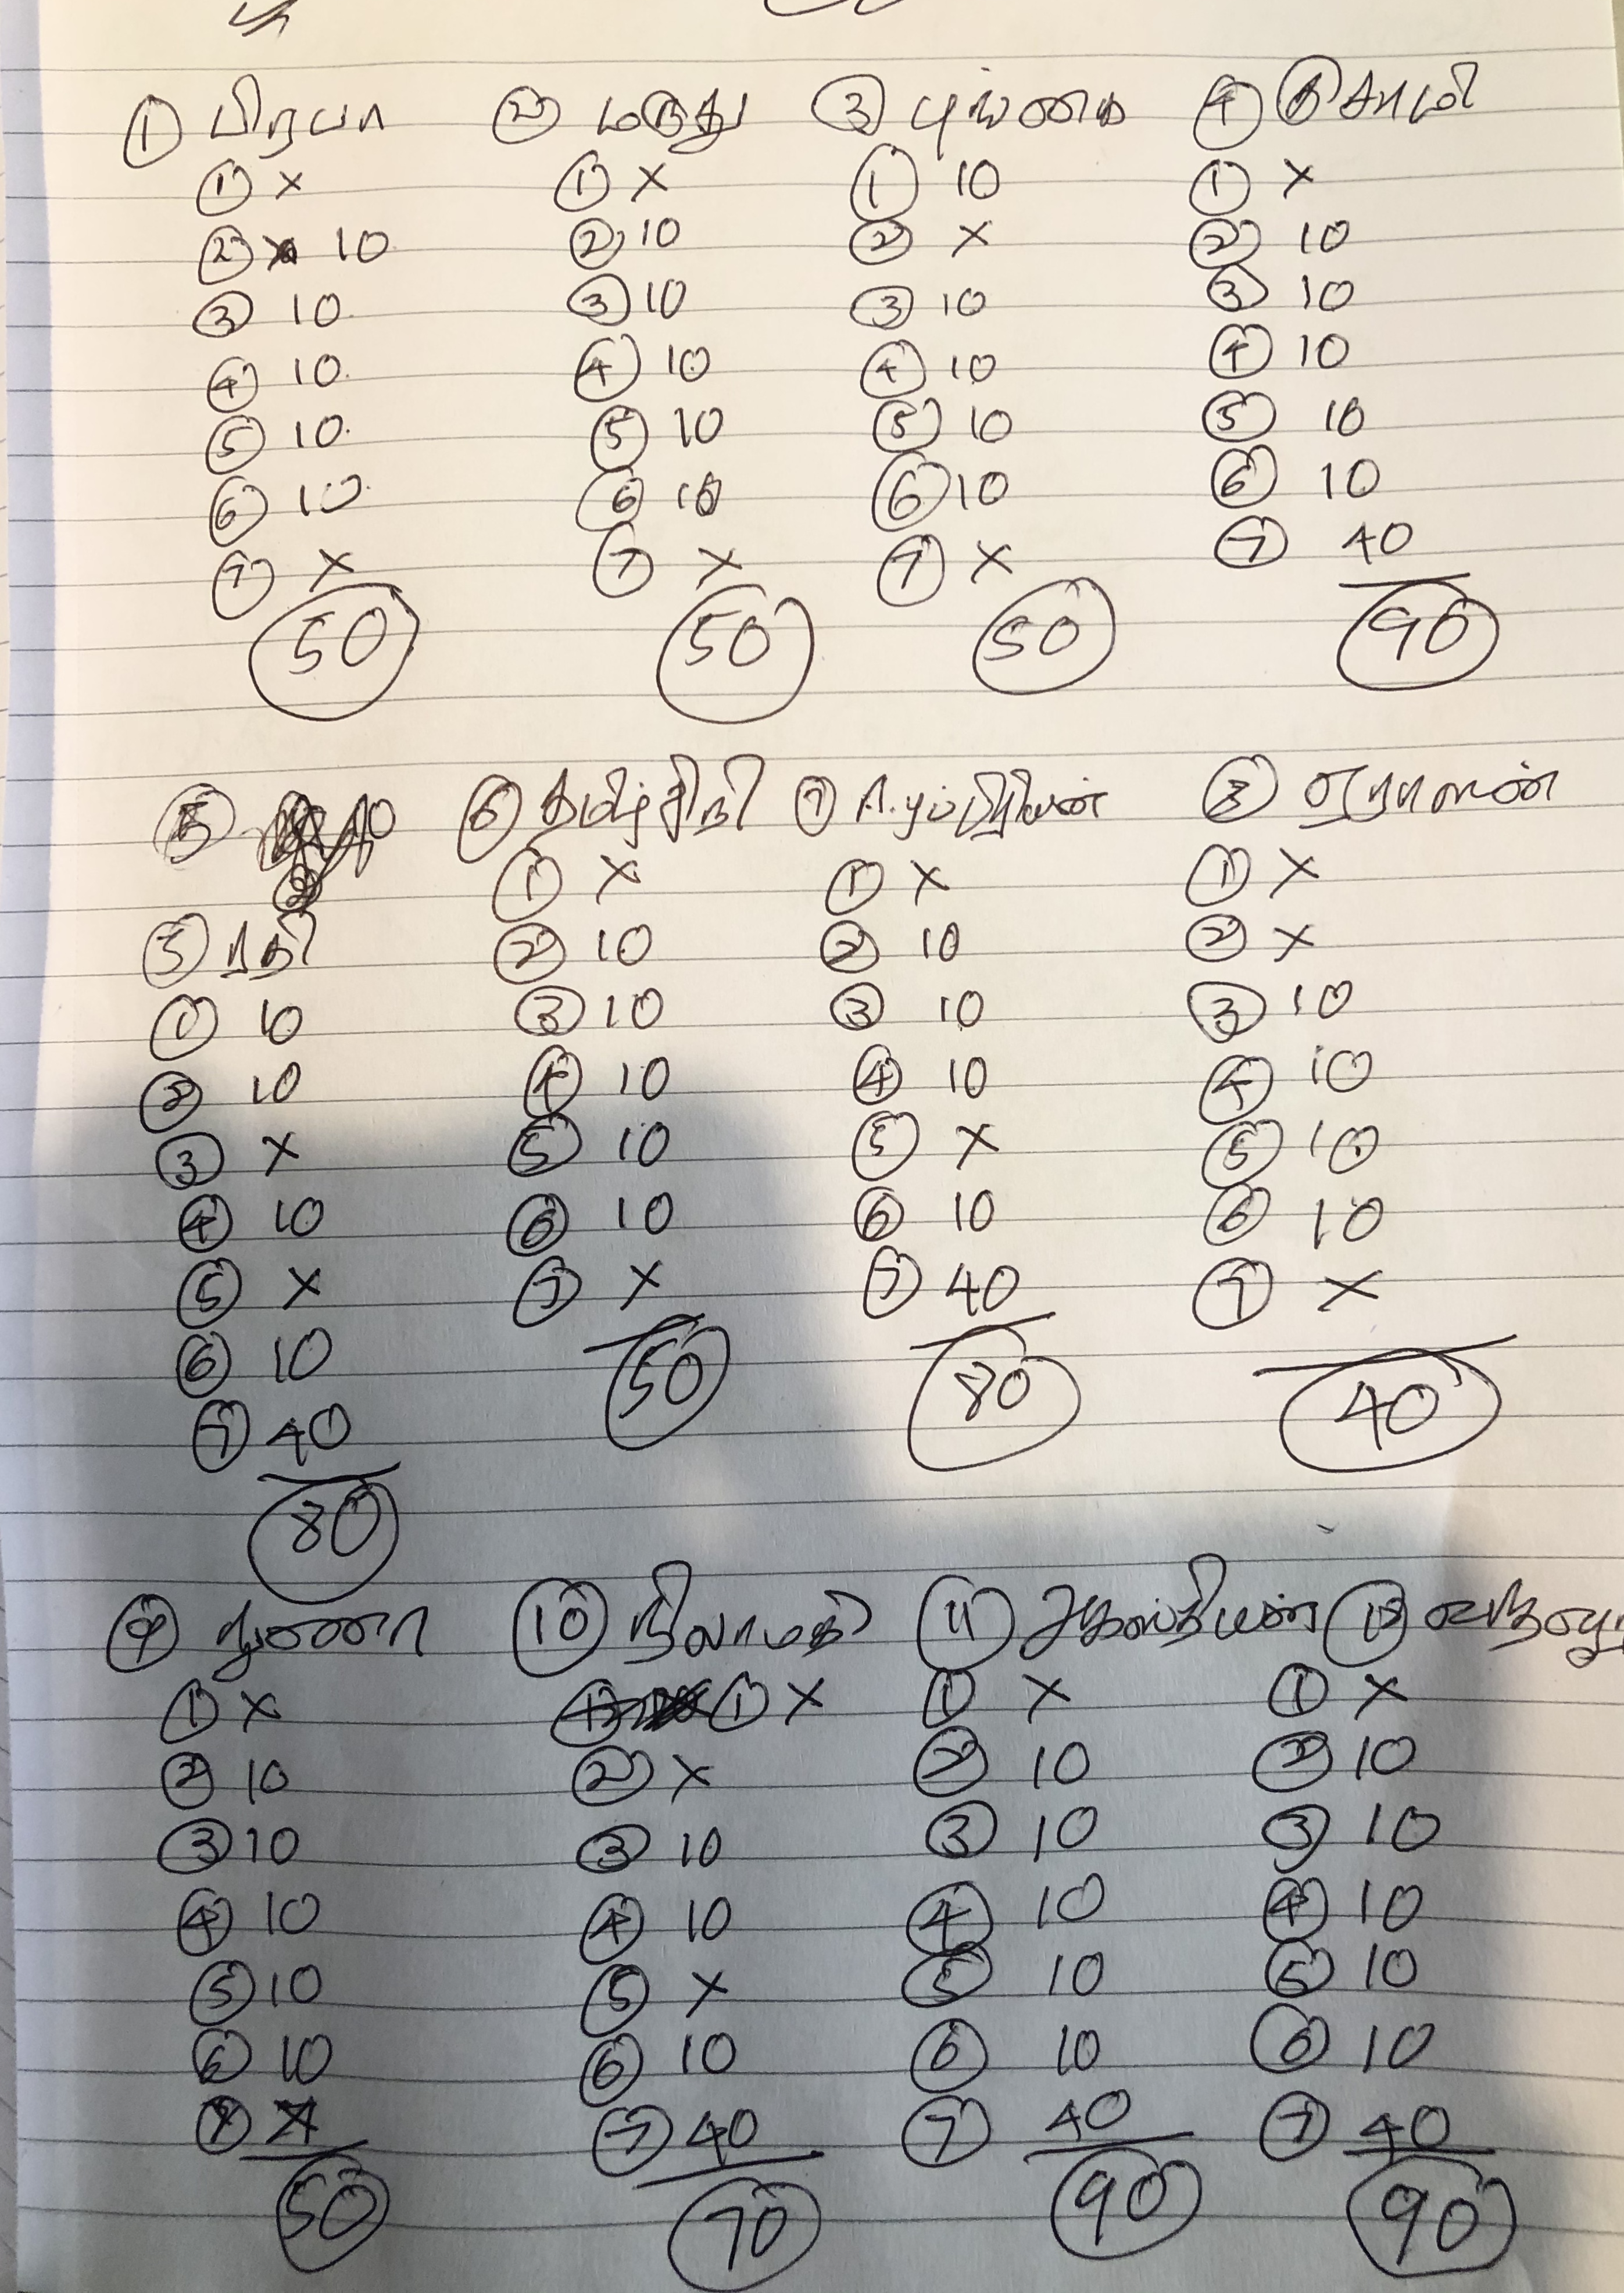 ① பிரயா ② மருது ③ புங்கை ④ சாமி
① x ① x ① 10 ① x
② 10 ② 10 ② x ② 10
③ 10 ③ 10 ③ 10 ③ 10
④ 10 ④ 10 ④ 10 ④ 10
⑤ 10 ⑤ 10 ⑤ 10 ⑤ 10
⑥ 10 ⑥ 10 ⑥ 10 ⑥ 10
⑦ x ⑦ x ⑦ x ⑦ 40
50 50 50 90
⑥ தமிழ்நிதி ⑦ ⑧
① x ① x ① x
⑤ நதி ② 10 ② 10 ② x
① 10 ③ 10 ③ 10 ③ 10
② 10 ④ 10 ④ 10 ④ 10
③ x ⑤ 10 ⑤ x ⑤ 10
④ 10 ⑥ 10 ⑥ 10 ⑥ 10
⑤ x ⑦ x ⑦ 40 ⑦ x
⑥ 10 50 80 40
⑦ 40
80
⑨ ⑩ நிலாமகள் ⑪ அகஸ்தியன் ⑫
① x ① x ① x ① x
② 10 ② x ② 10 ② 10
③ 10 ③ 10 ③ 10 ③ 10
④ 10 ④ 10 ④ 10 ④ 10
⑤ 10 ⑤ x ⑤ 10 ⑤ 10
⑥ 10 ⑥ 10 ⑥ 10 ⑥ 10
⑦ x ⑦ 40 ⑦ 40 ⑦ 40
50 70 90 90